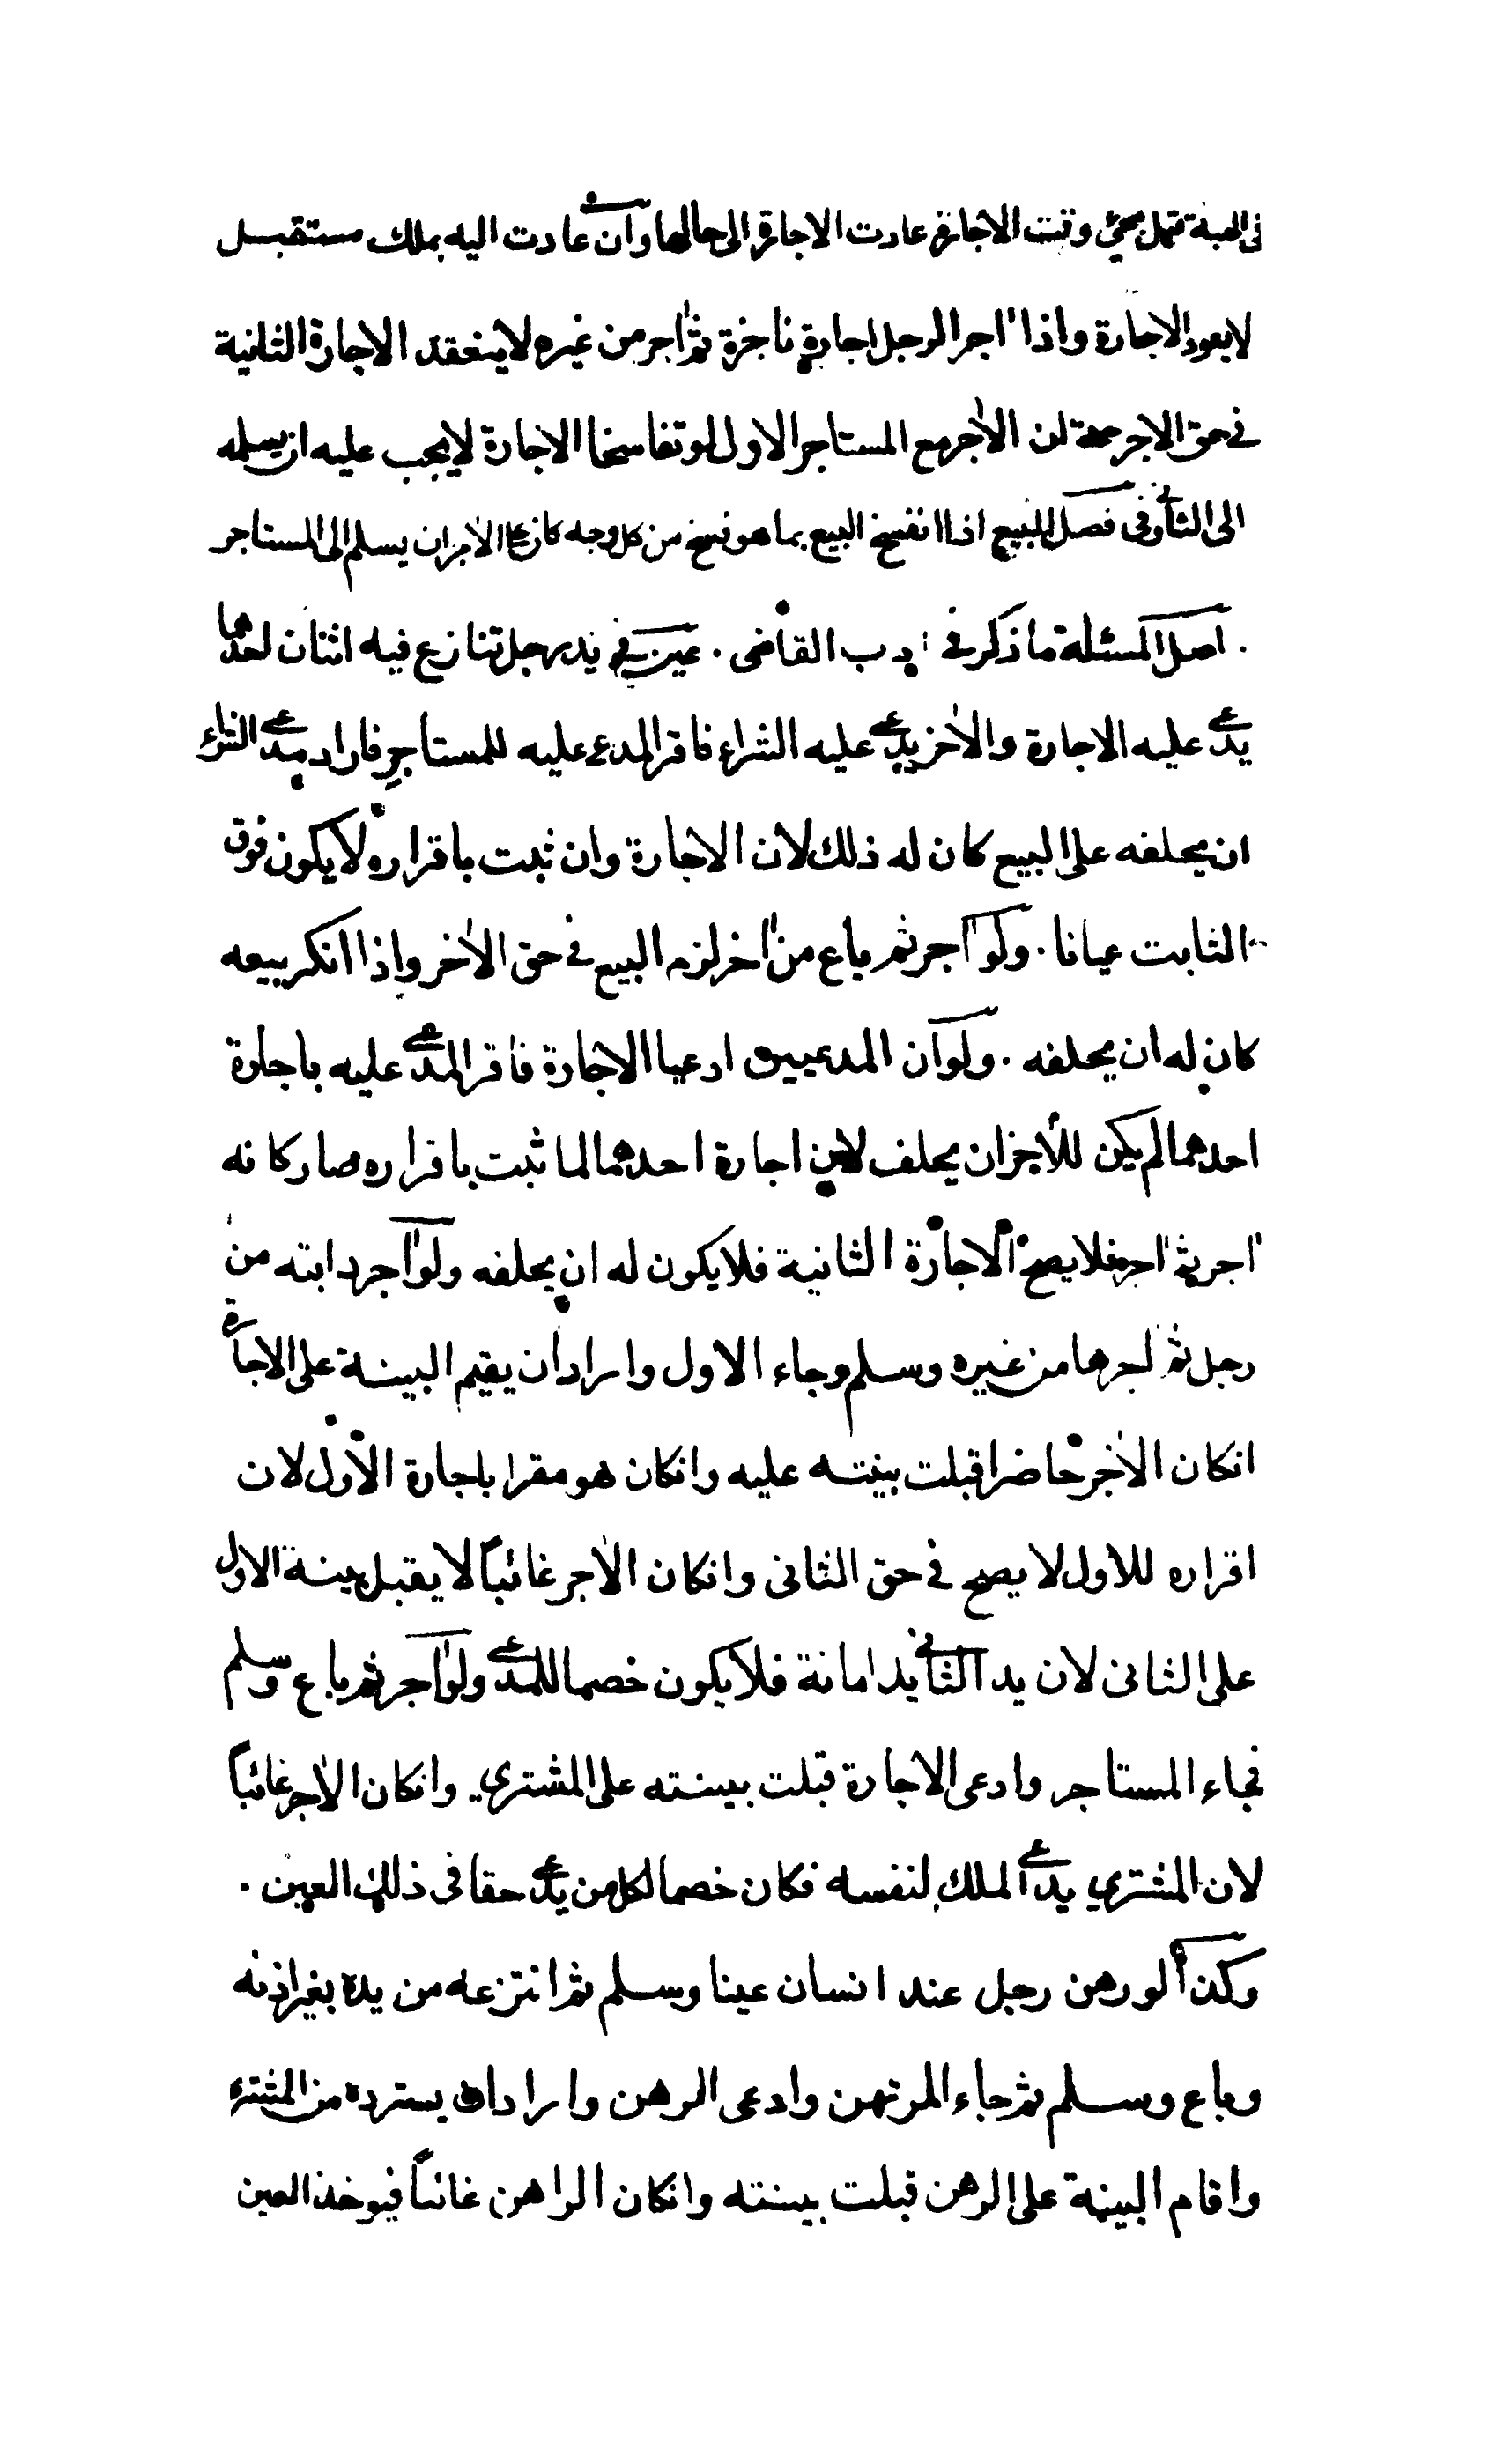 فى الهبة قبل مجئ وقت الاجارة عادت الاجارة الى حالها وان عادت اليه بملك مستقبل
لا يعود الاجارة واذا اجر الرجل اجارة ناجزة ثم اجر من غيره لا ينعقد الاجارة الثانية
فى حق الاجر حتى لن الاجر مع المستاجر الاول لو تفاسخا الاجارة لا يجب عليه ان يسلمه
الى الثانى وفى فصل البيع اذا انفسخ البيع بما هو فسخ من كل وجه كان على الاجر ان يسلم الى المستاجر
. اصل المسئلة ما ذكر فى ادب القاضى . عين فى يد رجل تنازع فيه اثنان احدهما
يدعى عليه الاجارة والاخر يدعى عليه الشراء فاقر المدعى عليه للمستاجر فاراد مدعى الشراء
ان يحلفه على البيع كان له ذلك لان الاجارة وان ثبت باقراره لا يكون فوق
الثابت عيانا . ولو اجر ثم باع من اخر لزم البيع فى حق الاخر واذا انكر بيعه
كان له ان يحلفه . ولو ان المدعيين ادعيا الاجارة فاقر المدعى عليه باجارة
احدهما لم يكن للاخر ان يحلف لان اجارة احدهما لما ثبت باقراره صار كانه
اجر ثم اجر فلا يصح الاجارة الثانية فلا يكون له ان يحلفه ولو اجر دابته من
رجل ثم اجرها من غيره وسلم وجاء الاول واراد ان يقيم البينة على الاجارة
انكان الاجر حاضرا قبلت بينته عليه وانكان هو مقرا باجارة الاول لان
اقراره للاول لا يصح فى حق الثانى وانكان الاجر غائباً لا يقبل بينة الاول
على الثانى لان يد الثانى يد امانة فلا يكون خصما للمدعى ولو اجر ثم باع وسلم
فجاء المستاجر وادعى الاجارة قبلت بينته على المشترى وانكان الاجر غائباً
لان المشترى يدعى الملك لنفسه فكان خصما لكل من يدعى حقا فى ذلك العين .
وكذا لو رهن رجل عند انسان عينا وسلم ثم انتزعه من يده بغير اذنه
وباع وسلم ثم جاء المرتهن وادعى الرهن واراد ان يسترده من المشترى
واقام البينة على الرهن قبلت بينته وانكان الراهن غائباً فيوخذ العين